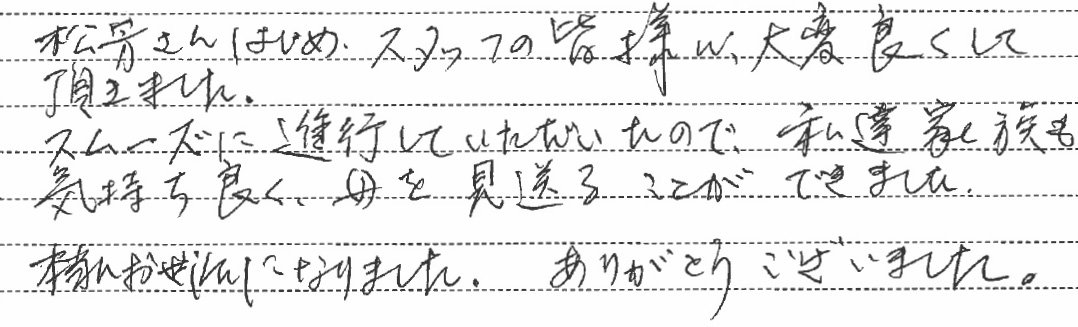 松骨さんはじめ、スタッフの皆様に、大変良くして
頂きました。
スムーズに進行していただいたので、私達家族も
気持ち良く、母を見送ることができました。
本当にお世話になりました。 ありがとうございました。